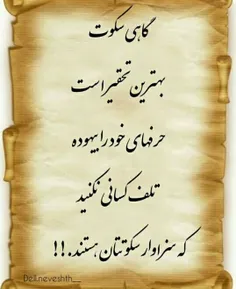 گاهی سکوت
بهترین تحقیر است
حرفهای خود را بیهوده
تلف کسانی نکنید
که سزاوار سکوتتان هستند.!!
Del.neveshth__